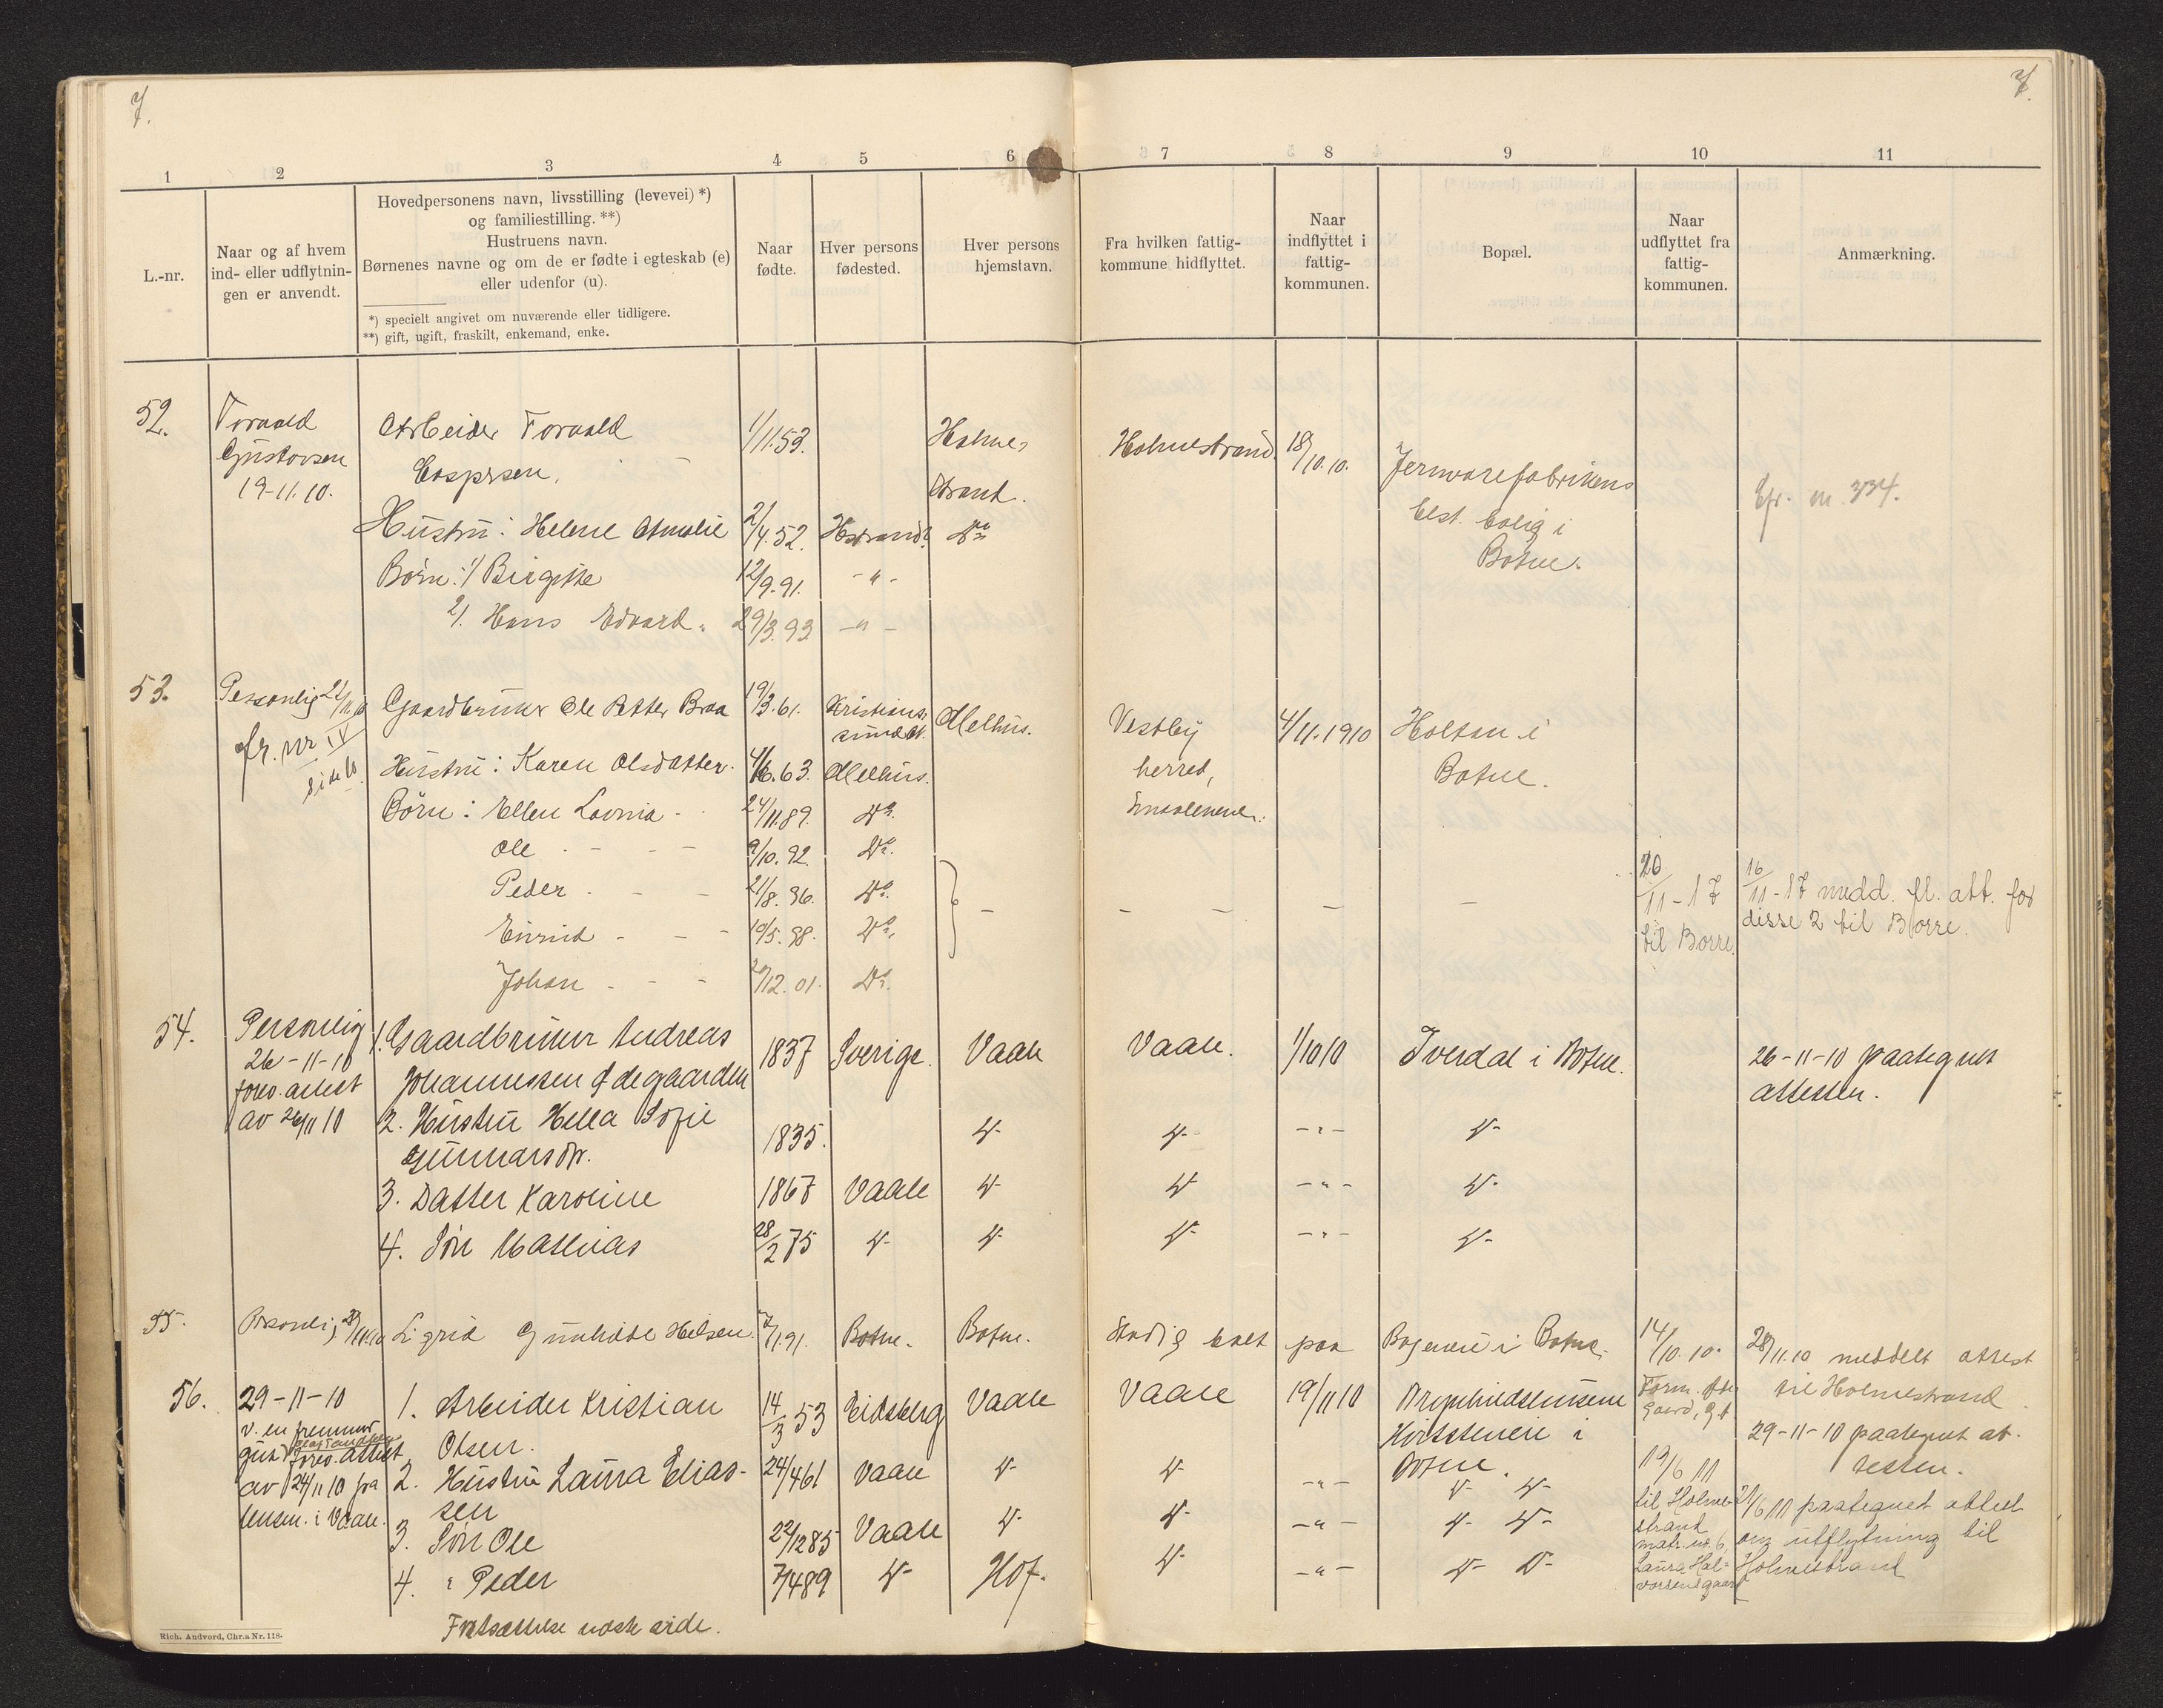 7.
7.
1 2 3 4 5 6 7 8 9 10 11
L.-nr.
Naar og af hvem
ind- eller udflytnin-
gen er anvendt.
Hovedpersonens navn, livsstilling (levevei) *)
og familiestilling. **)
Hustruens navn.
Børnenes navne og om de er fødte i egteskab (e)
eller udenfor (u).
*) specielt angivet om nuværende eller tidligere.
**) gift, ugift, fraskilt, enkemand, enke.
Naar
fødte.
Hver persons
fødested.
Hver persons
hjemstavn.
Fra hvilken fattig-
kommune hidflyttet.
Naar
indflyttet i
fattig-
kommunen.
Bopæl.
Naar
udflyttet fra
fattig-
kommunen.
Anmærkning.
52. Torvald Arbeider Torvald 1/11.53. Holme- Holmestrand 18/10.10. Jernvarefabrikens
Gustavsen Caspersen. strand. best. bolig i Cfr. nr. 334.
19-11.10. Botne.
Hustru: Helene Amalie 2/4.52. Hstrand. Do
Børn: 1/ Birgitte 12/9.91. - " -
2/. Hans Edvard. 29/3.93 - " -
53. Personlig 21/11.10 Gaardbruker Ole Petter Braa 19/3.61. Kristians- Melhus. Vestby 4/11.1910 Holtan i
cfr. nr IV sund N. herred, Botne.
side 60. Hustru: Karen Olsdatter. 4/6.63. Melhus. Smaalenene.
Børn: Ellen Lovnia - 24/11.89. Do.
Ole - - - 9/10.92. Do.
Peder - - - 21/8.96. Do. - - - - - 20/11-17 16/11-17 medd. fl. att. for
Eivind - - - 10/5.98. Do. til Borre. disse 2 til Borre.
Johan - - - 29/12.01. Do.
54. Personlig 1. Gaardbruker Andreas 1837 Sverige. Vaale Vaale. 1/10 10 Tverdal i Botne. 26-11-10 paategnet
26-11-10 Johannessen Ødegaarden attesten.
forev. attest
av 26/11 10 2. Hustru Hella Sofie 1835. D- D- - " - D-
Gunnarsdtr.
3. Datter Karoline 1867 Vaale D- D- - " - D-
4. Søn Mathias 28/2 75 D- D- D- - " - D-
55. Personlig 28/11.10 Sigrid Gunhilde Nilsen. 7/1.91. Botne. Botne. Stadig boet paa Bogenei i Botne. 14/10.10. 28/11.10 meddelt attest
til Holmestrand.
56. 29-11-10 1. Arbeider Kristian 14/3 53 Eidsberg Vaale Vaale 19/11 10 i 29-11-10 paategnet at-
v. en fremmed Olsen. Botne. testen.
forev. attest
av 24/11 10 fra 2. Hustru Laura Elias- 24/4 61 Vaale D- D- - " - D- D- 19/6 11
lensm. i Vaale. sen til Holme- 21/6 11 paategnet attest
3. Søn Ole 22/12 85 Vaale D- D- - " - D- D- strand om utflytning til
4. " Peder 7/4 89 D- Hof. D- - " - D- D- matr. no. 6, Holmestrand
Laura Hal-
vorsensgaard
Fortsættelse næste side.
Rich. Andvord, Chr.a Nr. 118.